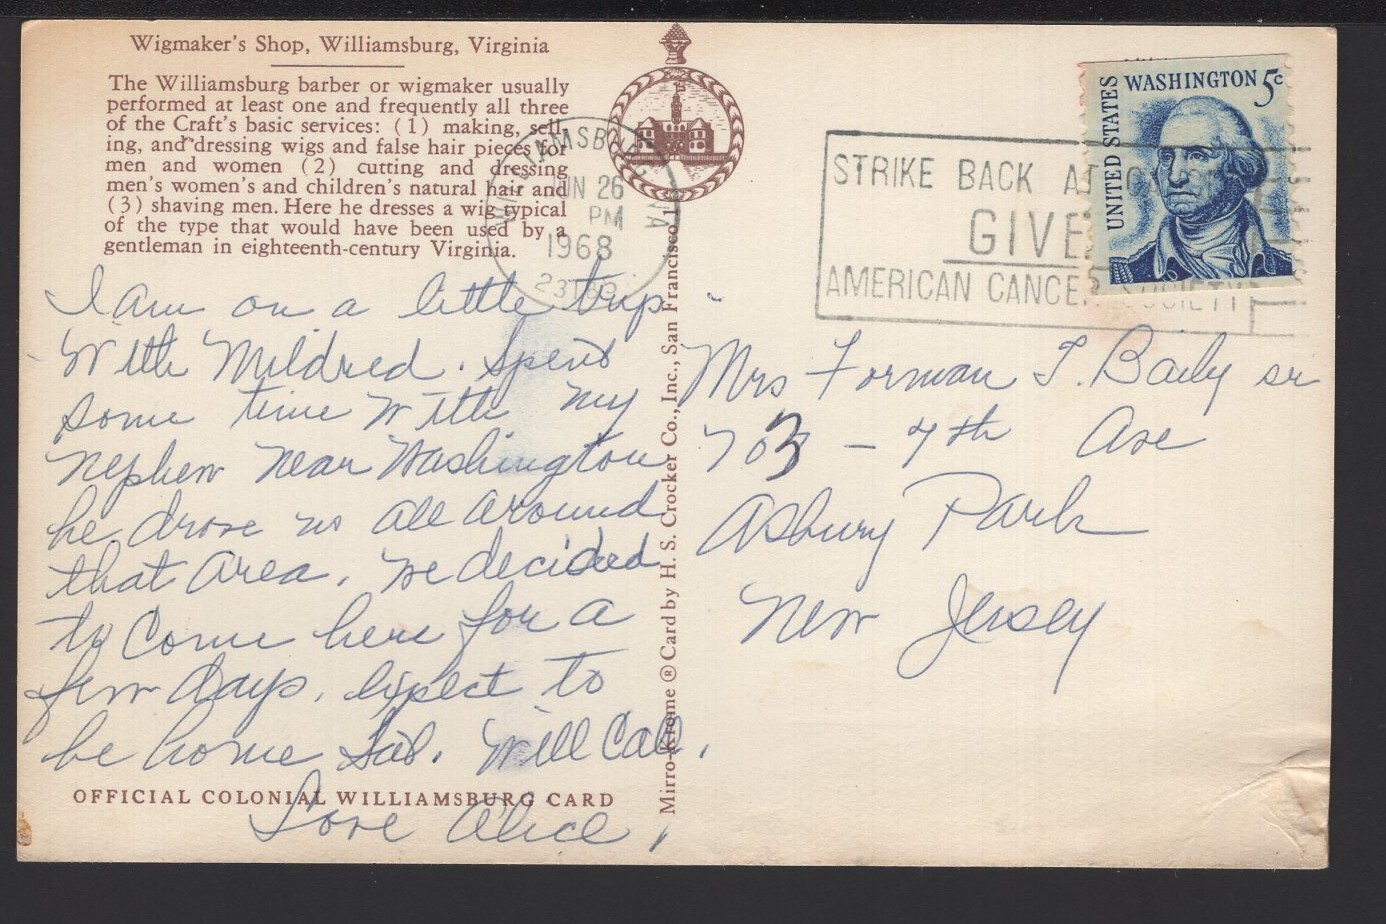 Wigmaker's Shop, Williamsburg, Virginia
The Williamsburg barber or wigmaker usually
performed at least one and frequently all three
of the Craft's basic services: (1) making, sell-
ing, and dressing wigs and false hair pieces for
men and women (2) cutting and dressing
men's women's and children's natural hair and
(3) shaving men. Here he dresses a wig typical
of the type that would have been used by a
gentleman in eighteenth-century Virginia.
I am on a little trip
With Mildred. Spent
some time with my
Nephew near Washington
he drove us all around
that area. We decided
to come here for a
few days, expect to
be home Sat. Will Call.
Love Alice,
OFFICIAL COLONIAL WILLIAMSBURG CARD
Mirro-Krome ® Card by H. S. Crocker Co., Inc., San Francisco 1
JUN 26
PM
1968
STRIKE BACK
GIVE
AMERICAN CANCER SOCIETY
UNITED STATES
WASHINGTON 5c
Mrs Forman T. Baily sr
703 - 7th Ave
Asbury Park
New Jersey